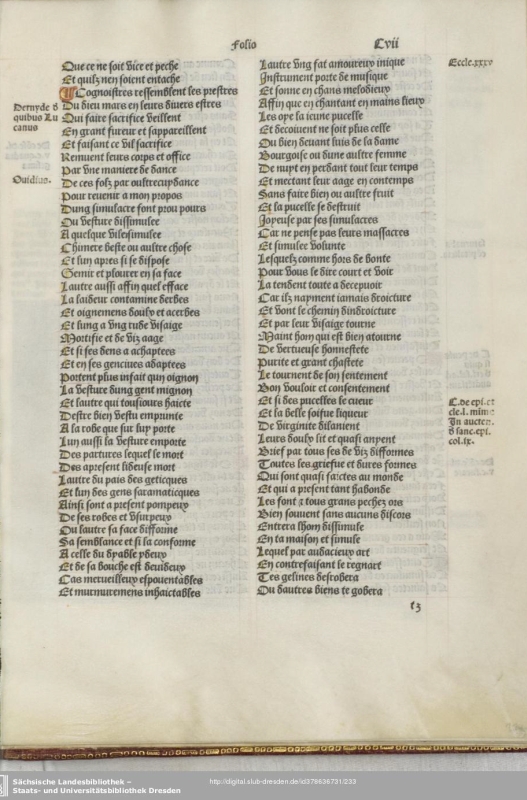 Folio Cvii
Que ce ne soit vice et peche
Et quilz nen soient entache
Cognoistres ressemblent les prestres
Du dieu mars en leurs divers estres
Qui faire sacrifice veillent
En grant fureur et sappareillent
Et faisant ce vil sacrifice
Remuent leurs corps et office
Par vne maniere de dance
De ces folz par oultrecuydance
Pour revenir a mon propos
Dung simulacre font prou pours
Ou vesture dissimulee
A quelque vilersimulee
Chimere beste ou aultre chose
Et lun apres si se dispose
Gemir et plourer en sa face
Lautre aussi affin quel efface
La laideur contamine derbes
Et oignemens doulx et acerbes
Et lung a vng tube visaige
Mortifie et de viz aage
Et si ses dens a achaptees
Et en ses gencives adaptees
Portent plus infait quin oignon
La vesture dung gent mignon
Et lautre qui tousiours haicte
Destre bien vestu emprunte
A la robe que sur luy porte
Lun aussi la vesture emporte
Des partures lequel se mort
Des apresent libeuse mort
Lautre du pais des geticques
Et lun des gens saramaticques
Ainsi sont a present pompeux
De ses robes et vsurpeux
Ou lautre sa face difforme
Sa semblance et si la conforme
A celle du dyable ydeux
Et de sa bouche est beuideux
Cas merveilleux espouentables
Et murmuremens inhaictables
Dernyde &
quibus Lu
canus
Ouidius.
Lautre vng fat amoureux inique
Instrument porte de musique
Et sonne en chans melodieux
Affin que en chantant en mains lieux
Les oye la ieune pucelle
Et decoivent ne soit plus celle
Ou bien devant luis de la dame
Bourgoise ou dune aultre femme
De nuyt en perdant tout leur temps
Et mectant leur aage en contemps
Sans faire bien ou aultre fruit
Et la pucelle se destruit
Joyeuse par ses simulacres
Car ne pense pas leurs massacres
Et simulee volunte
Lesquelz comme hors de bonte
Pour vous le dire court et voir
La tendent toute a decepuoir
Car ilz nayment iamais droicture
Et vont le chemin dindroicture
Et par leur visaige tourne
Maint hom qui est bien atourne
De vertueuse honnestete
Purite et grant chastete
Le tournent de son sentement
Bon vouloir et consentement
Et si des pucelles le cueur
Et la belle soifue liqueur
De virginite dilanient
Leurs doulx lit et quasi anyent
Brief par tous ses de viz difformes
Toutes les griefue et dures formes
Qui sont quasi faictes au monde
Et qui a present tant habonde
Les font a tous grans pechez ors
Bien souvent sans aucuns discors
Entrera lhom dissimule
En ta maison et simule
Lequel par audacieux art
En contrefaisant le regnart
Tes gelines desrobera
Ou dautres biens te gobera
t3
Eccle.xxxv
C. de epi. et
cle. l. mime
In aucten.
d sanc. epi.
col. ix.
Sächsische Landesbibliothek –
Staats- und Universitätsbibliothek Dresden
http://digital.slub-dresden.de/id378636731/233